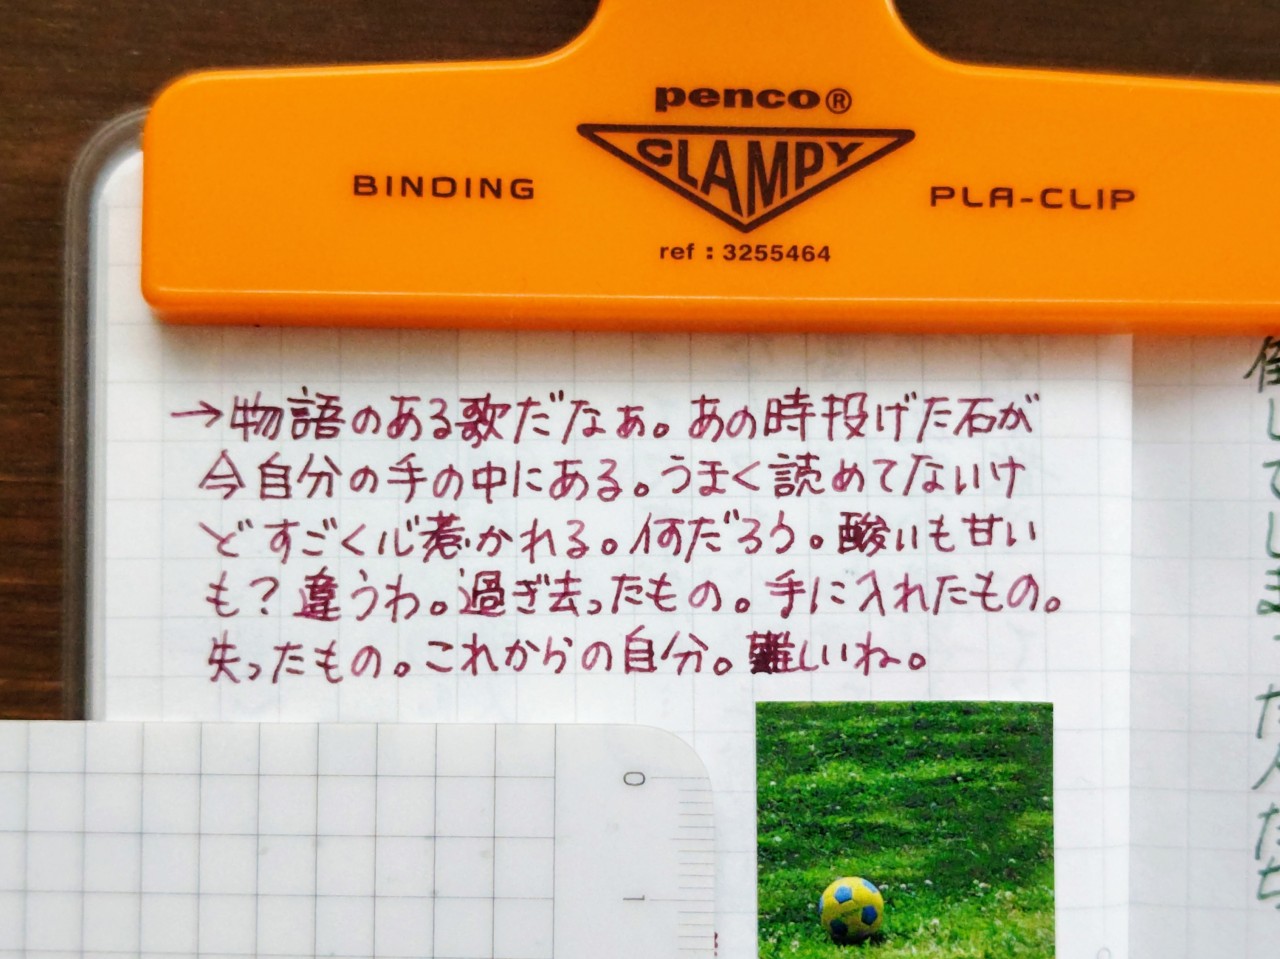 penco®
CLAMPY
BINDING
PLA-CLIP
ref : 3255464
→物語のある歌だなぁ。あの時投げた石が
今自分の手の中にある。うまく読めてないけ
どすごく心惹かれる。何だろう。酸いも甘い
も?違うわ。過ぎ去ったもの。手に入れたもの。
失ったもの。これからの自分。難しいね。
0
1